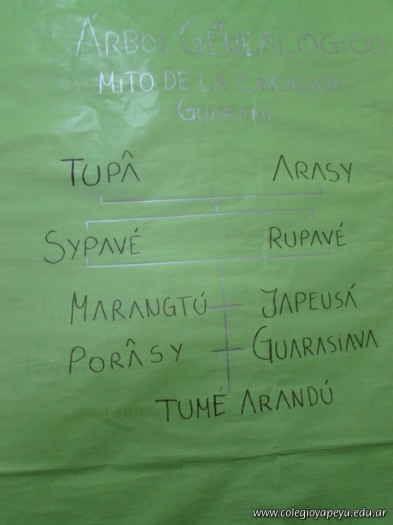 ÁRBOL GENEALÓGICO
MITO DE LA CREACIÓN
GUARANÍ
TUPÂ ARASY
SYPAVÉ RUPAVÉ
MARANGTÚ JAPEUSÁ
PORÂSY GUARASIAVA
TUMÉ ARANDÚ
www.colegioyapeyu.edu.ar